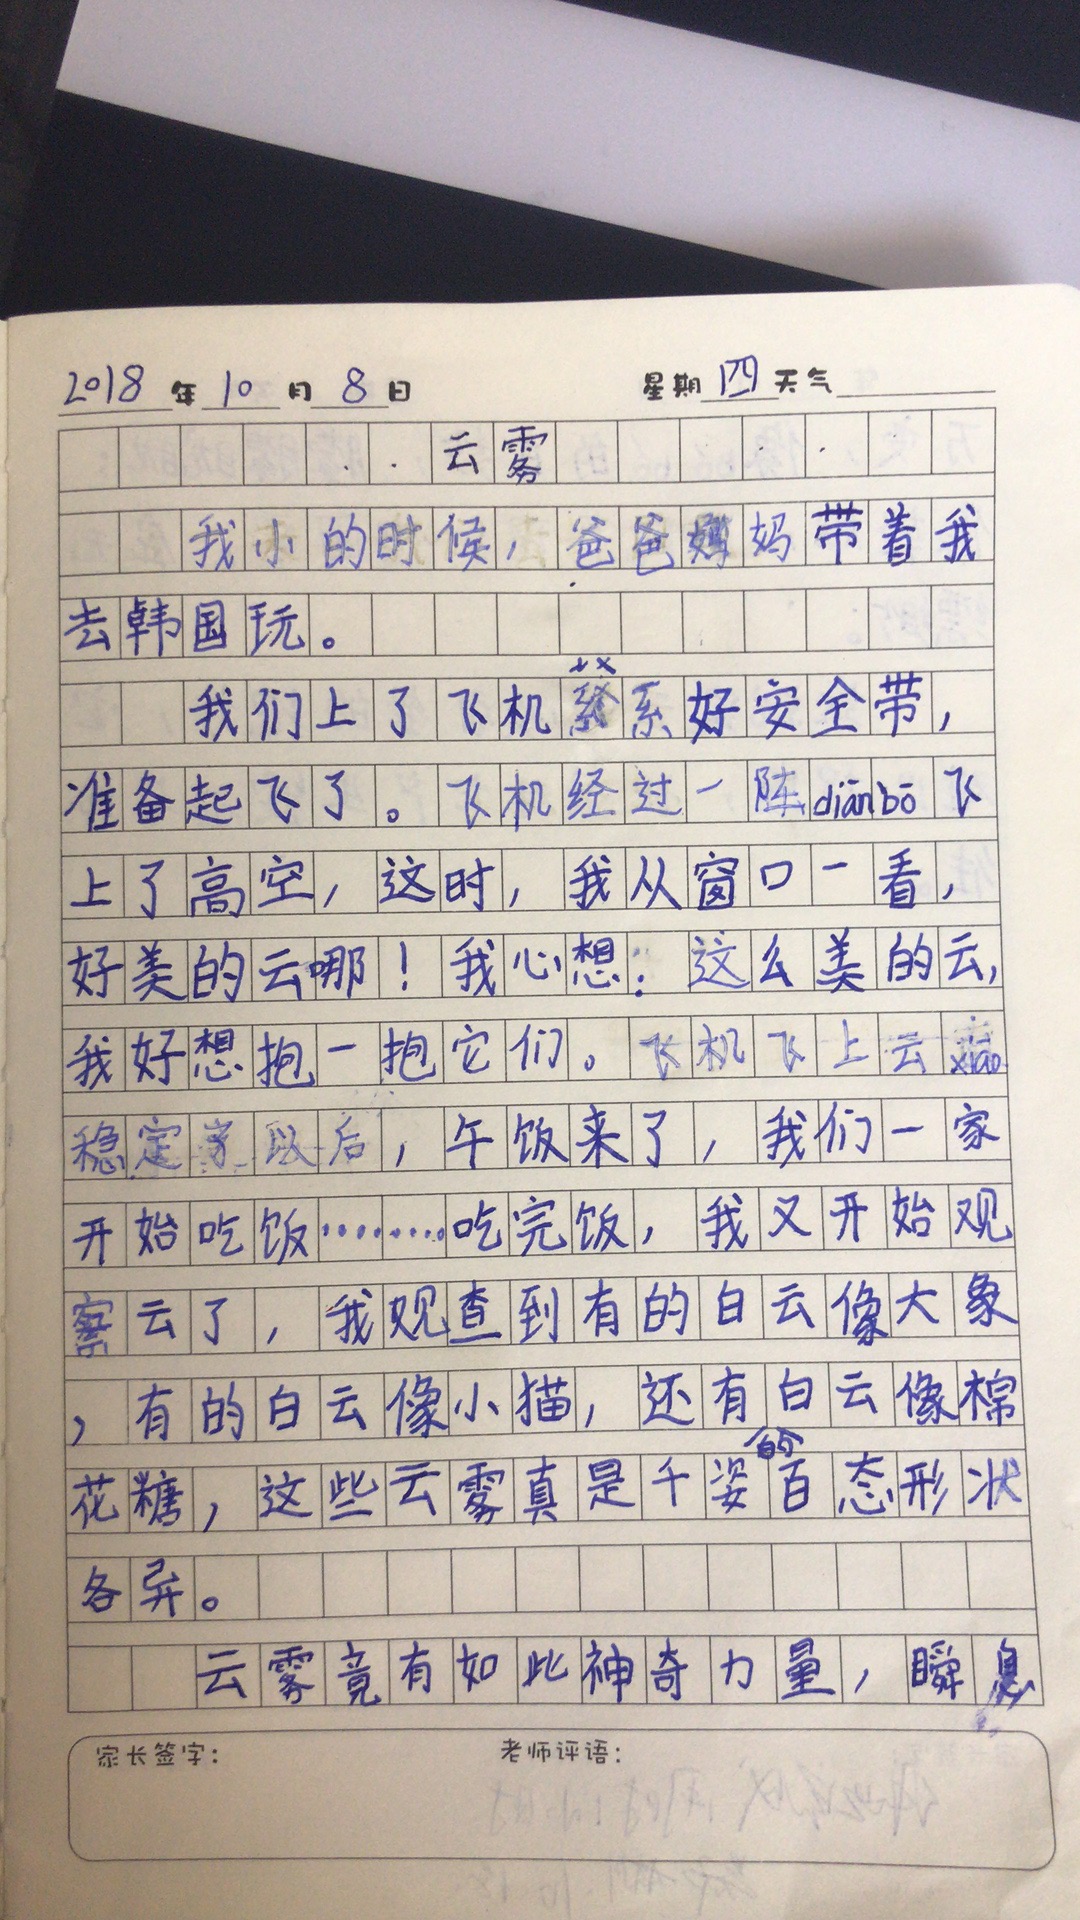 2018年10月8日 星期四天气
云雾
我小的时候，爸爸妈妈带着我
去韩国玩。
我们上了飞机系好安全带，
准备起飞了。飞机经过一阵diānbō飞
上了高空，这时，我从窗口一看，
好美的云哪！我心想：这么美的云，
我好想抱一抱它们。飞机飞上云xiāo
稳定以后，午饭来了，我们一家
开始吃饭………吃完饭，我又开始观
察云了，我观查到有的白云像大象
，有的白云像小猫，还有的白云像棉
花糖，这些云雾真是千姿百态形状
各异。
云雾竟有如此神奇力量，瞬息
家长签字： 老师评语：